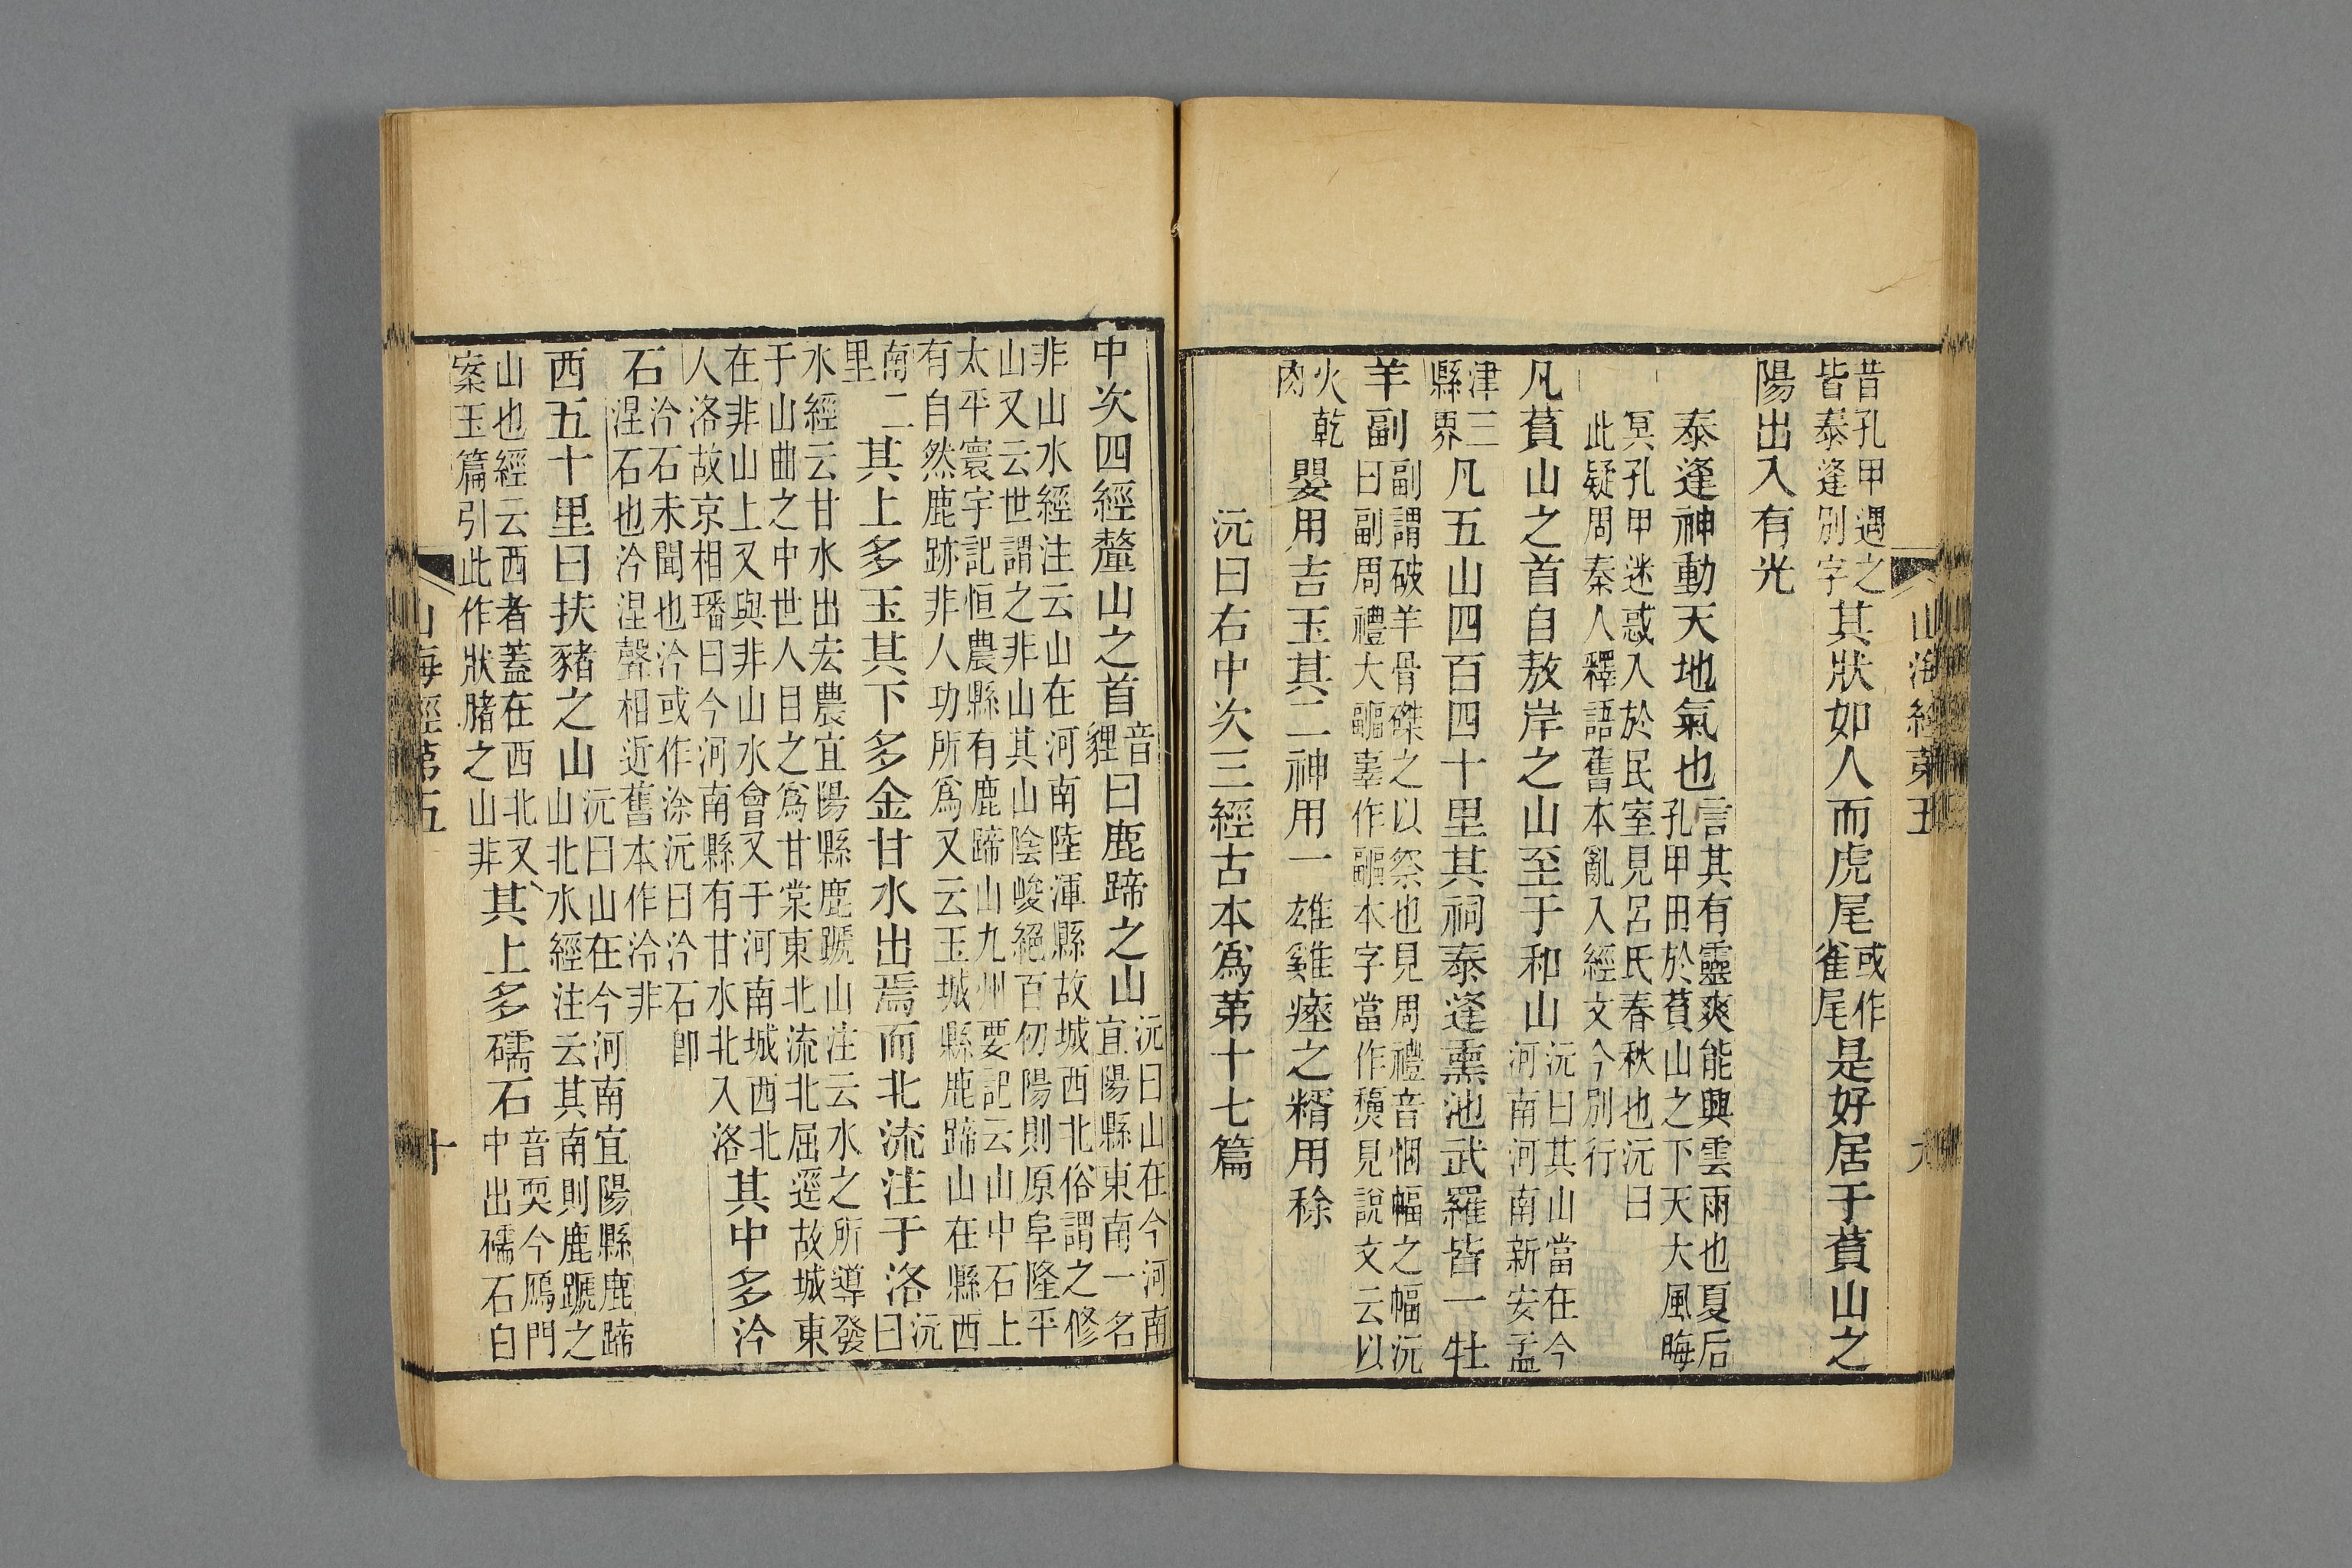 山海經第五 九
昔孔甲遇之
皆泰逢別字
其狀如人而虎尾
或作
雀尾
是好居于萯山之
陽出入有光
泰逢神動天地氣也
言其有靈爽能興雲雨也夏后
孔甲田於萯山之下天大風晦
冥孔甲迷惑入於民室見呂氏春秋也沅曰
此疑周秦人釋語舊本亂入經文今別行
凡萯山之首自敖岸之山至于和山
沅曰其山當在今
河南河南新安孟
津三
縣界
凡五山四百四十里其祠泰逢熏池武羅皆一牡
羊副
副謂破羊骨磔之以祭也見周禮音悃愊之愊沅
曰副周禮大疈辜作疈本字當作見說文云以
火乾
肉
嬰用吉玉其二神用一雄雞瘞之糈用稌
沅曰右中次三經古本爲第十七篇
中次四經釐山之首
音
貍
曰鹿蹄之山
沅曰山在今河南
宜陽縣東南一名
非山水經注云山在河南陸渾縣故城西北俗謂之修
山又云世謂之非山其山陰峻絕百仞陽則原阜隆平
太平寰宇記恒農縣有鹿蹄山九州要記云山中石上
有自然鹿跡非人功所爲又云玉城縣鹿蹄山在縣西
南二
里
其上多玉其下多金甘水出焉而北流注于洛
沅
曰
水經云甘水出宏農宜陽縣鹿蹏山注云水之所導發
于山曲之中世人目之爲甘棠東北流北屈逕故城東
在非山上又與非山水會又于河南城西北
人洛故京相璠曰今河南縣有甘水北入洛
其中多汵
石
汵石未聞也汵或作涂沅曰汵石卽
涅石也汵涅聲相近舊本作泠非
西五十里曰扶豬之山
沅曰山在今河南宜陽縣鹿蹄
山北水經注云其南則鹿蹏之
山也經云西者蓋在西北又
案玉篇引此作狀之山非
其上多礝石
音耎今鴈門
中出礝石白
山海經第五 十